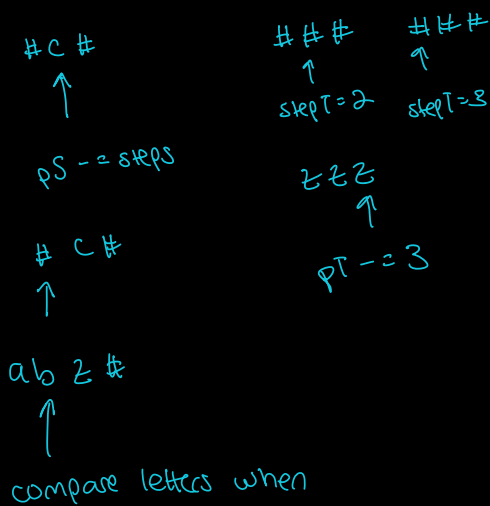 #C#
pS -= steps
# C #
abz#
compare letters when
### ###
stepT=2 stepT=3
zzz
pT -= 3